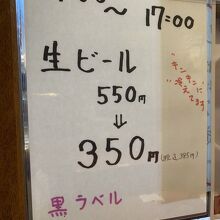 ～ 17:00
生ビール
"キンキンに
冷えてます"
550円
⇓
350円(税込385円)
黒ラベル